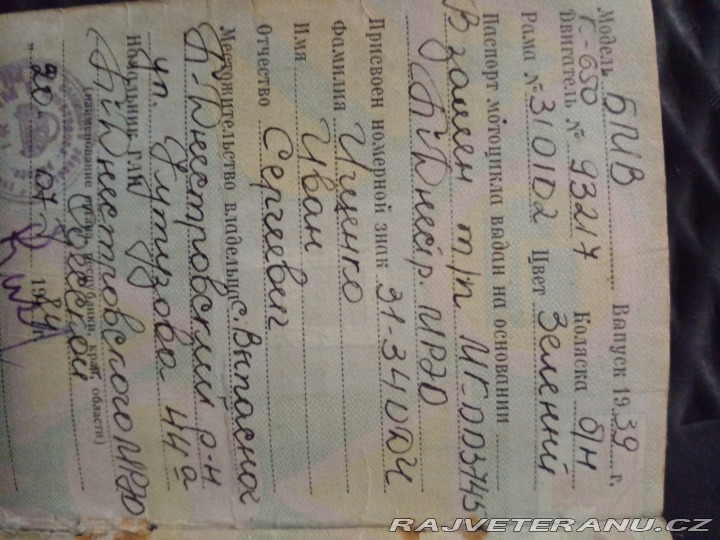 Модель БМВ Выпуск 1939 г.
К-650
Двигатель № 93217 Коляска б/н
Рама № 310102 Цвет Зеленний
Паспорт мотоцикла выдан на основании
В замен т/п. МГ 003745
Б/Днестр. МРЭО
Присвоен номерной знак 31-34 ОДЧ
Фамилия Ищенко
Имя Иван
Отчество Сергеевич
Местожительство владельца
Б-Днестровский р-н
ул. Кутузова 44а
Начальник ГАИ
Б/Днестровского МРЭО
(наименование органа, республики, край, области)
Одесской
"20" 07 1984 г.
RAJVETERANU.CZ